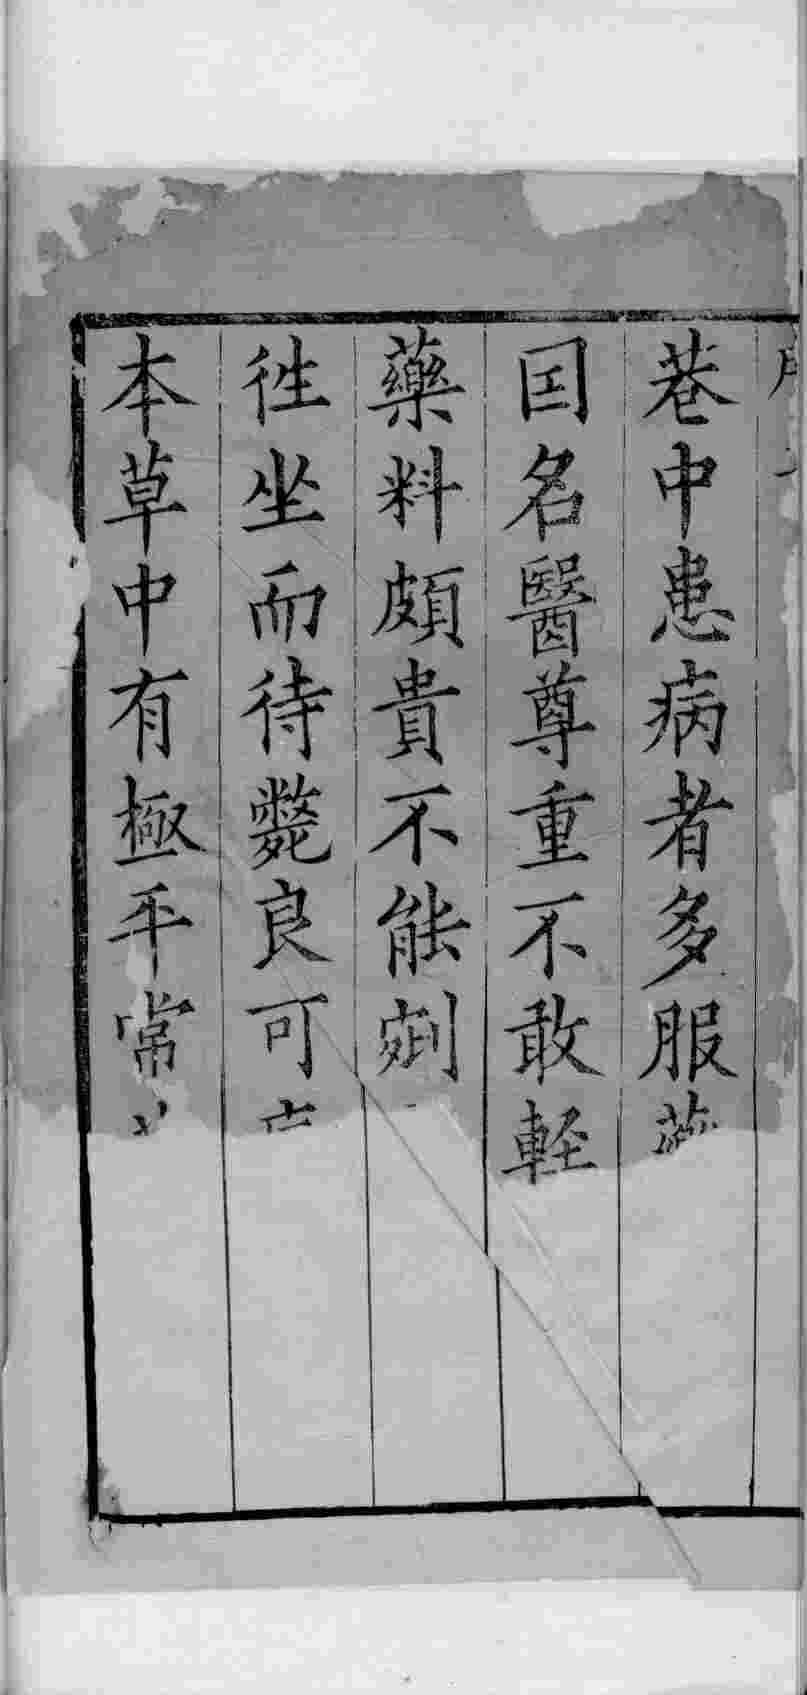 巷中患病者多服藥
囯名醫尊重不敢輕
藥料頗貴不能劑
徃坐而待斃良可
本草中有極平常